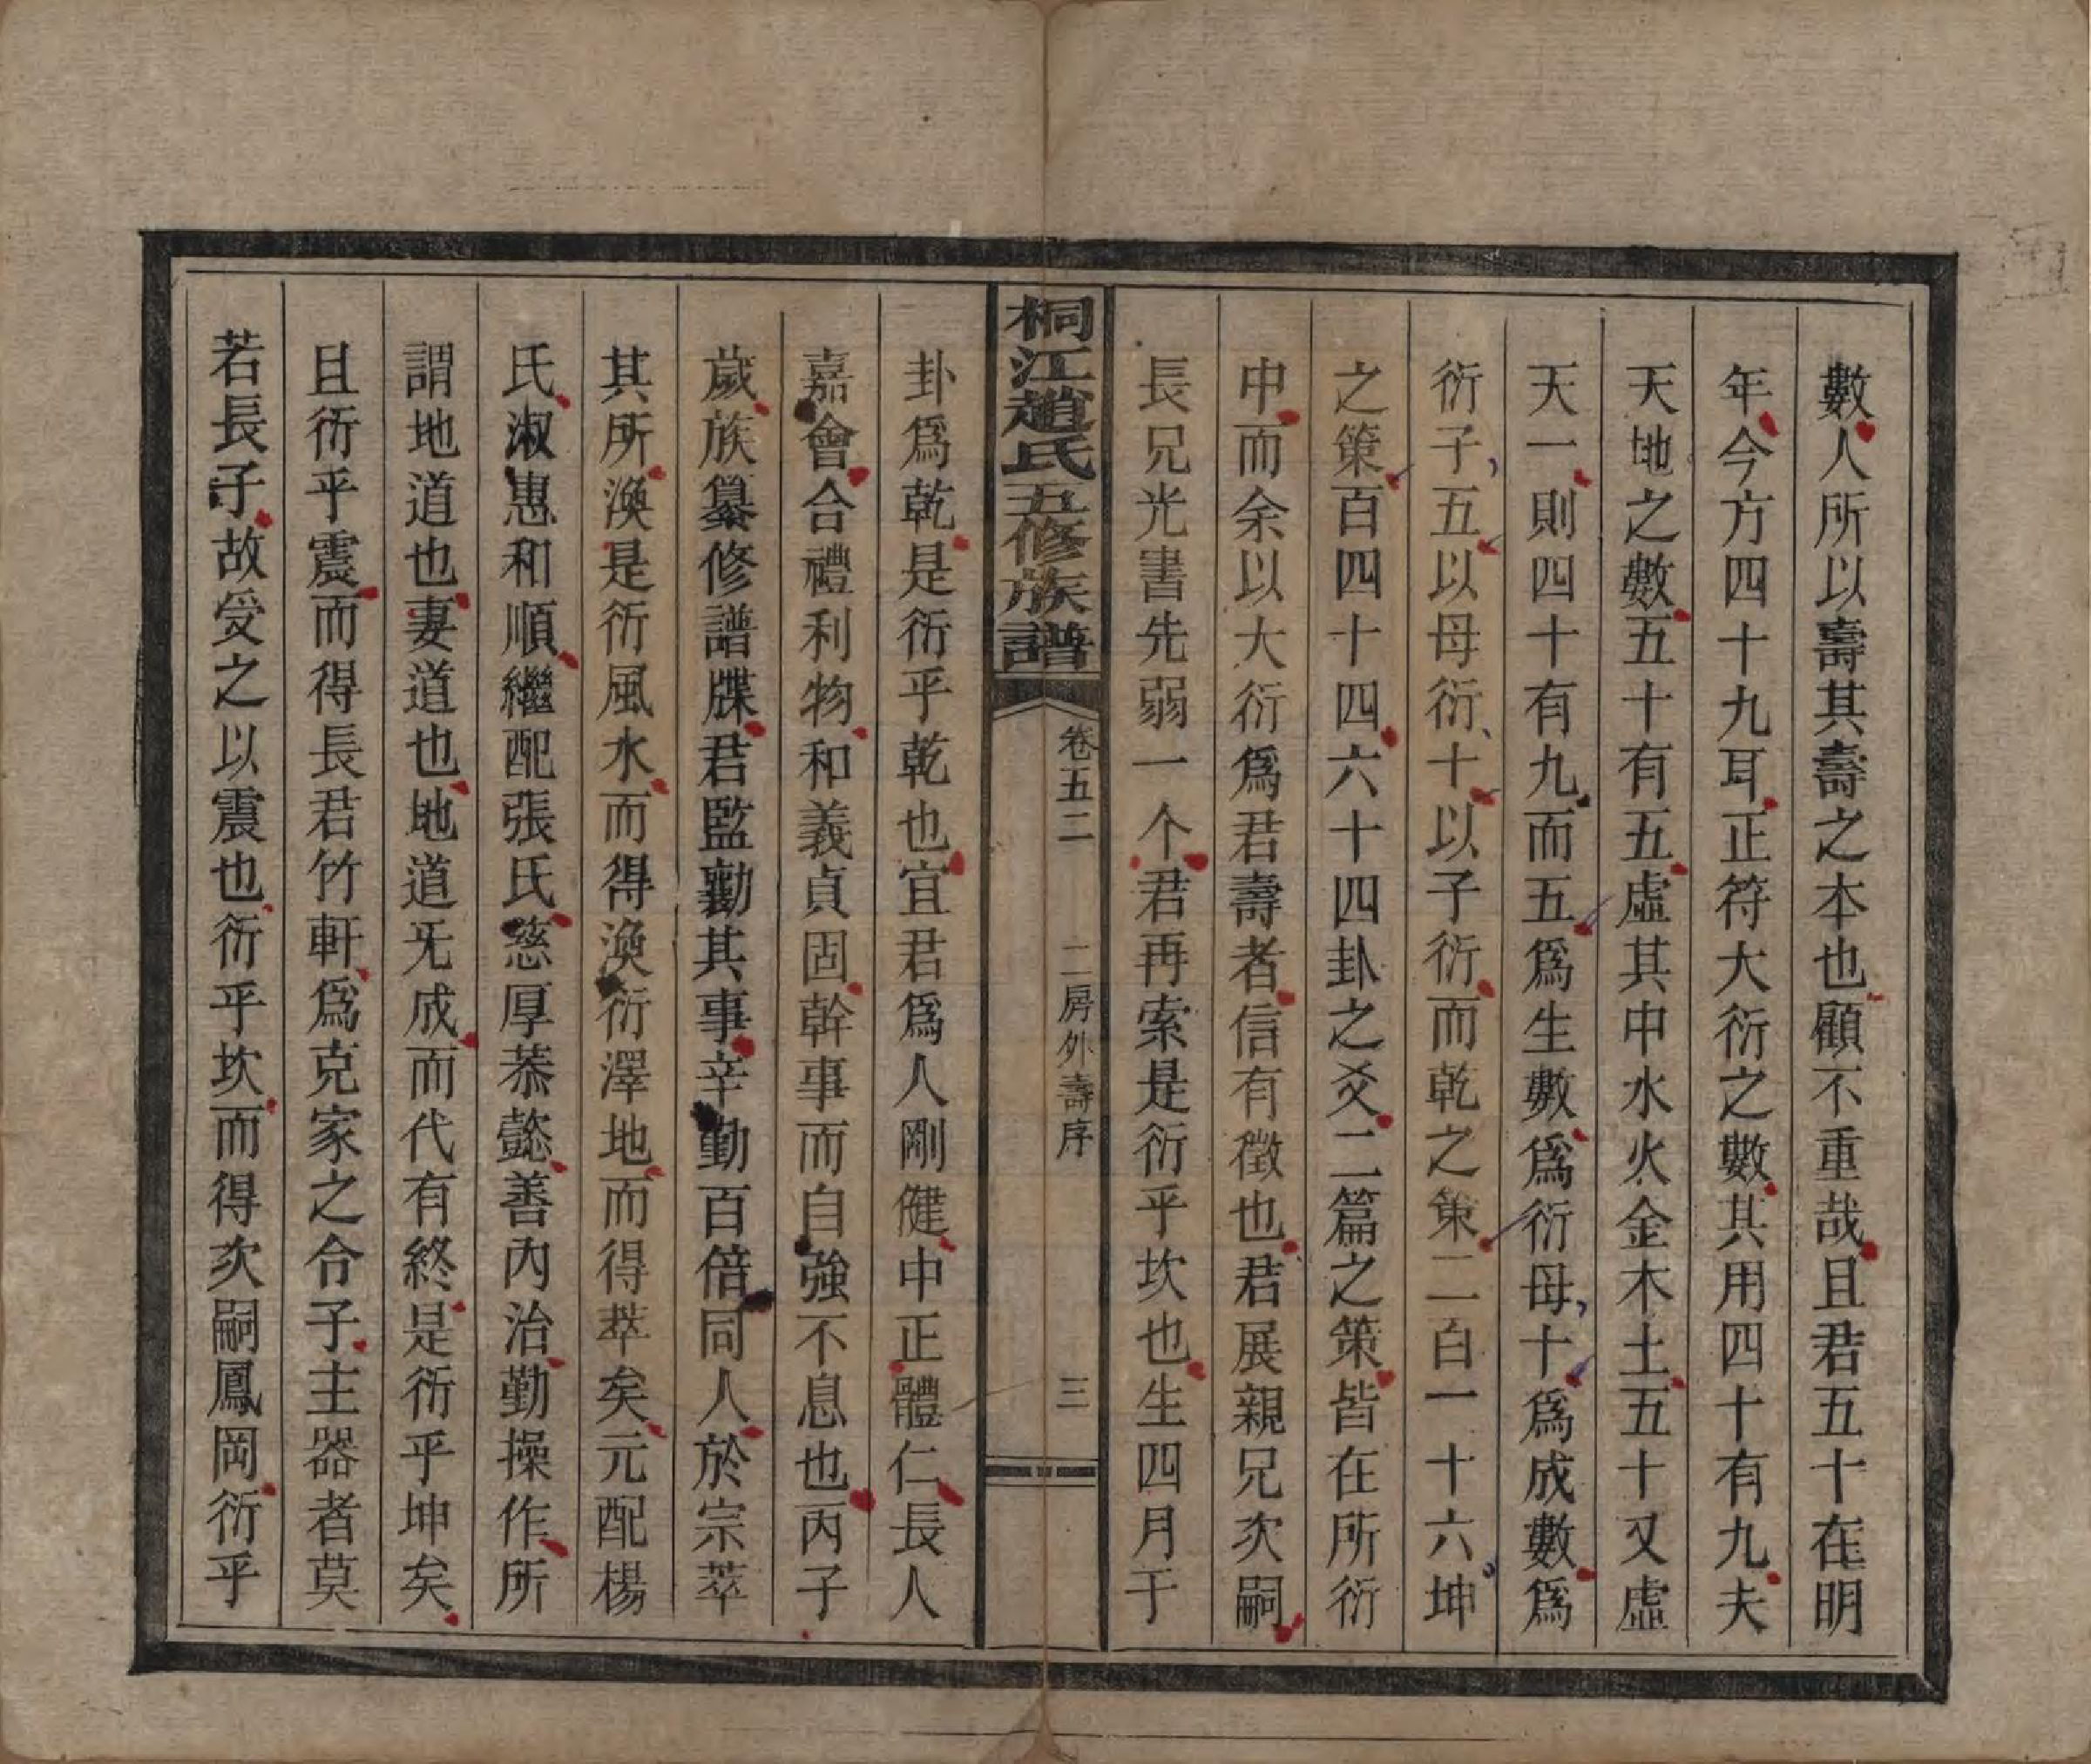 數人所以壽其壽之本也顧不重哉且君五十在明
年今方四十九耳正符大衍之數其用四十有九夫
天地之數五十有五虛其中水火金木土五十又虛
天一則四十有九而五爲生數爲衍母十爲成數爲
衍子五以母衍十以子衍而乾之策二百一十六坤
之策百四十四六十四卦之爻二篇之策皆在所衍
中而余以大衍爲君壽者信有徵也君展親兄次嗣
長兄光書先弱一个君再索是衍乎坎也生四月于
桐江趙氏五修族譜 卷五二 二房外壽序 三
卦爲乾是衍乎乾也宜君爲人剛健中正體仁長人
嘉會合禮利物和義貞固幹事而自強不息也丙子
歲族纂修譜牒君監勷其事辛勤百倍同人於宗萃
其所渙是衍風水而得渙衍澤地而得萃矣元配楊
氏淑惠和順繼配張氏慈厚恭懿善內治勤操作所
謂地道也妻道也地道无成而代有終是衍乎坤矣
且衍乎震而得長君竹軒爲克家之合子主器者莫
若長子故受之以震也衍乎坎而得次嗣鳳岡衍乎